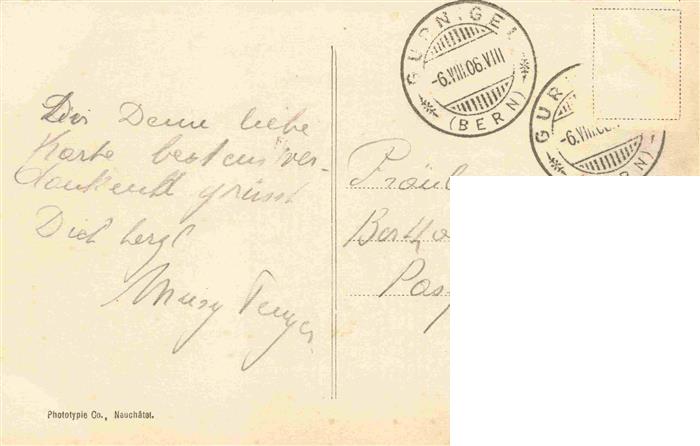 GURNIGEL
-6.VIII.06.VIII
(BERN)
GUR
-6.VIII.06
RN)
Dir Deine liebe
Karte bestens ver-
dankend grüsst
Dich herzl
Fräul
Bertha
Pos
Phototypie Co., Neuchâtel.